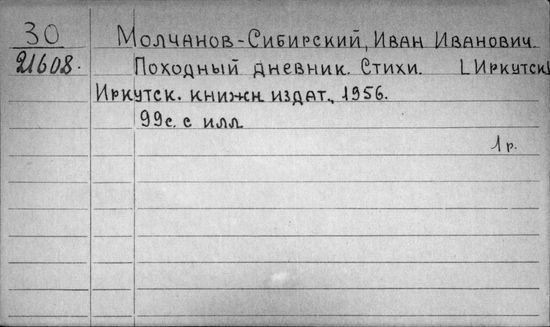 30 Молчанов-Сибирский, Иван Иванович.
21608. Походный дневник. Стихи. [Иркутск]
Иркутск. книжн. издат., 1956.
99с. с илл.
1р.